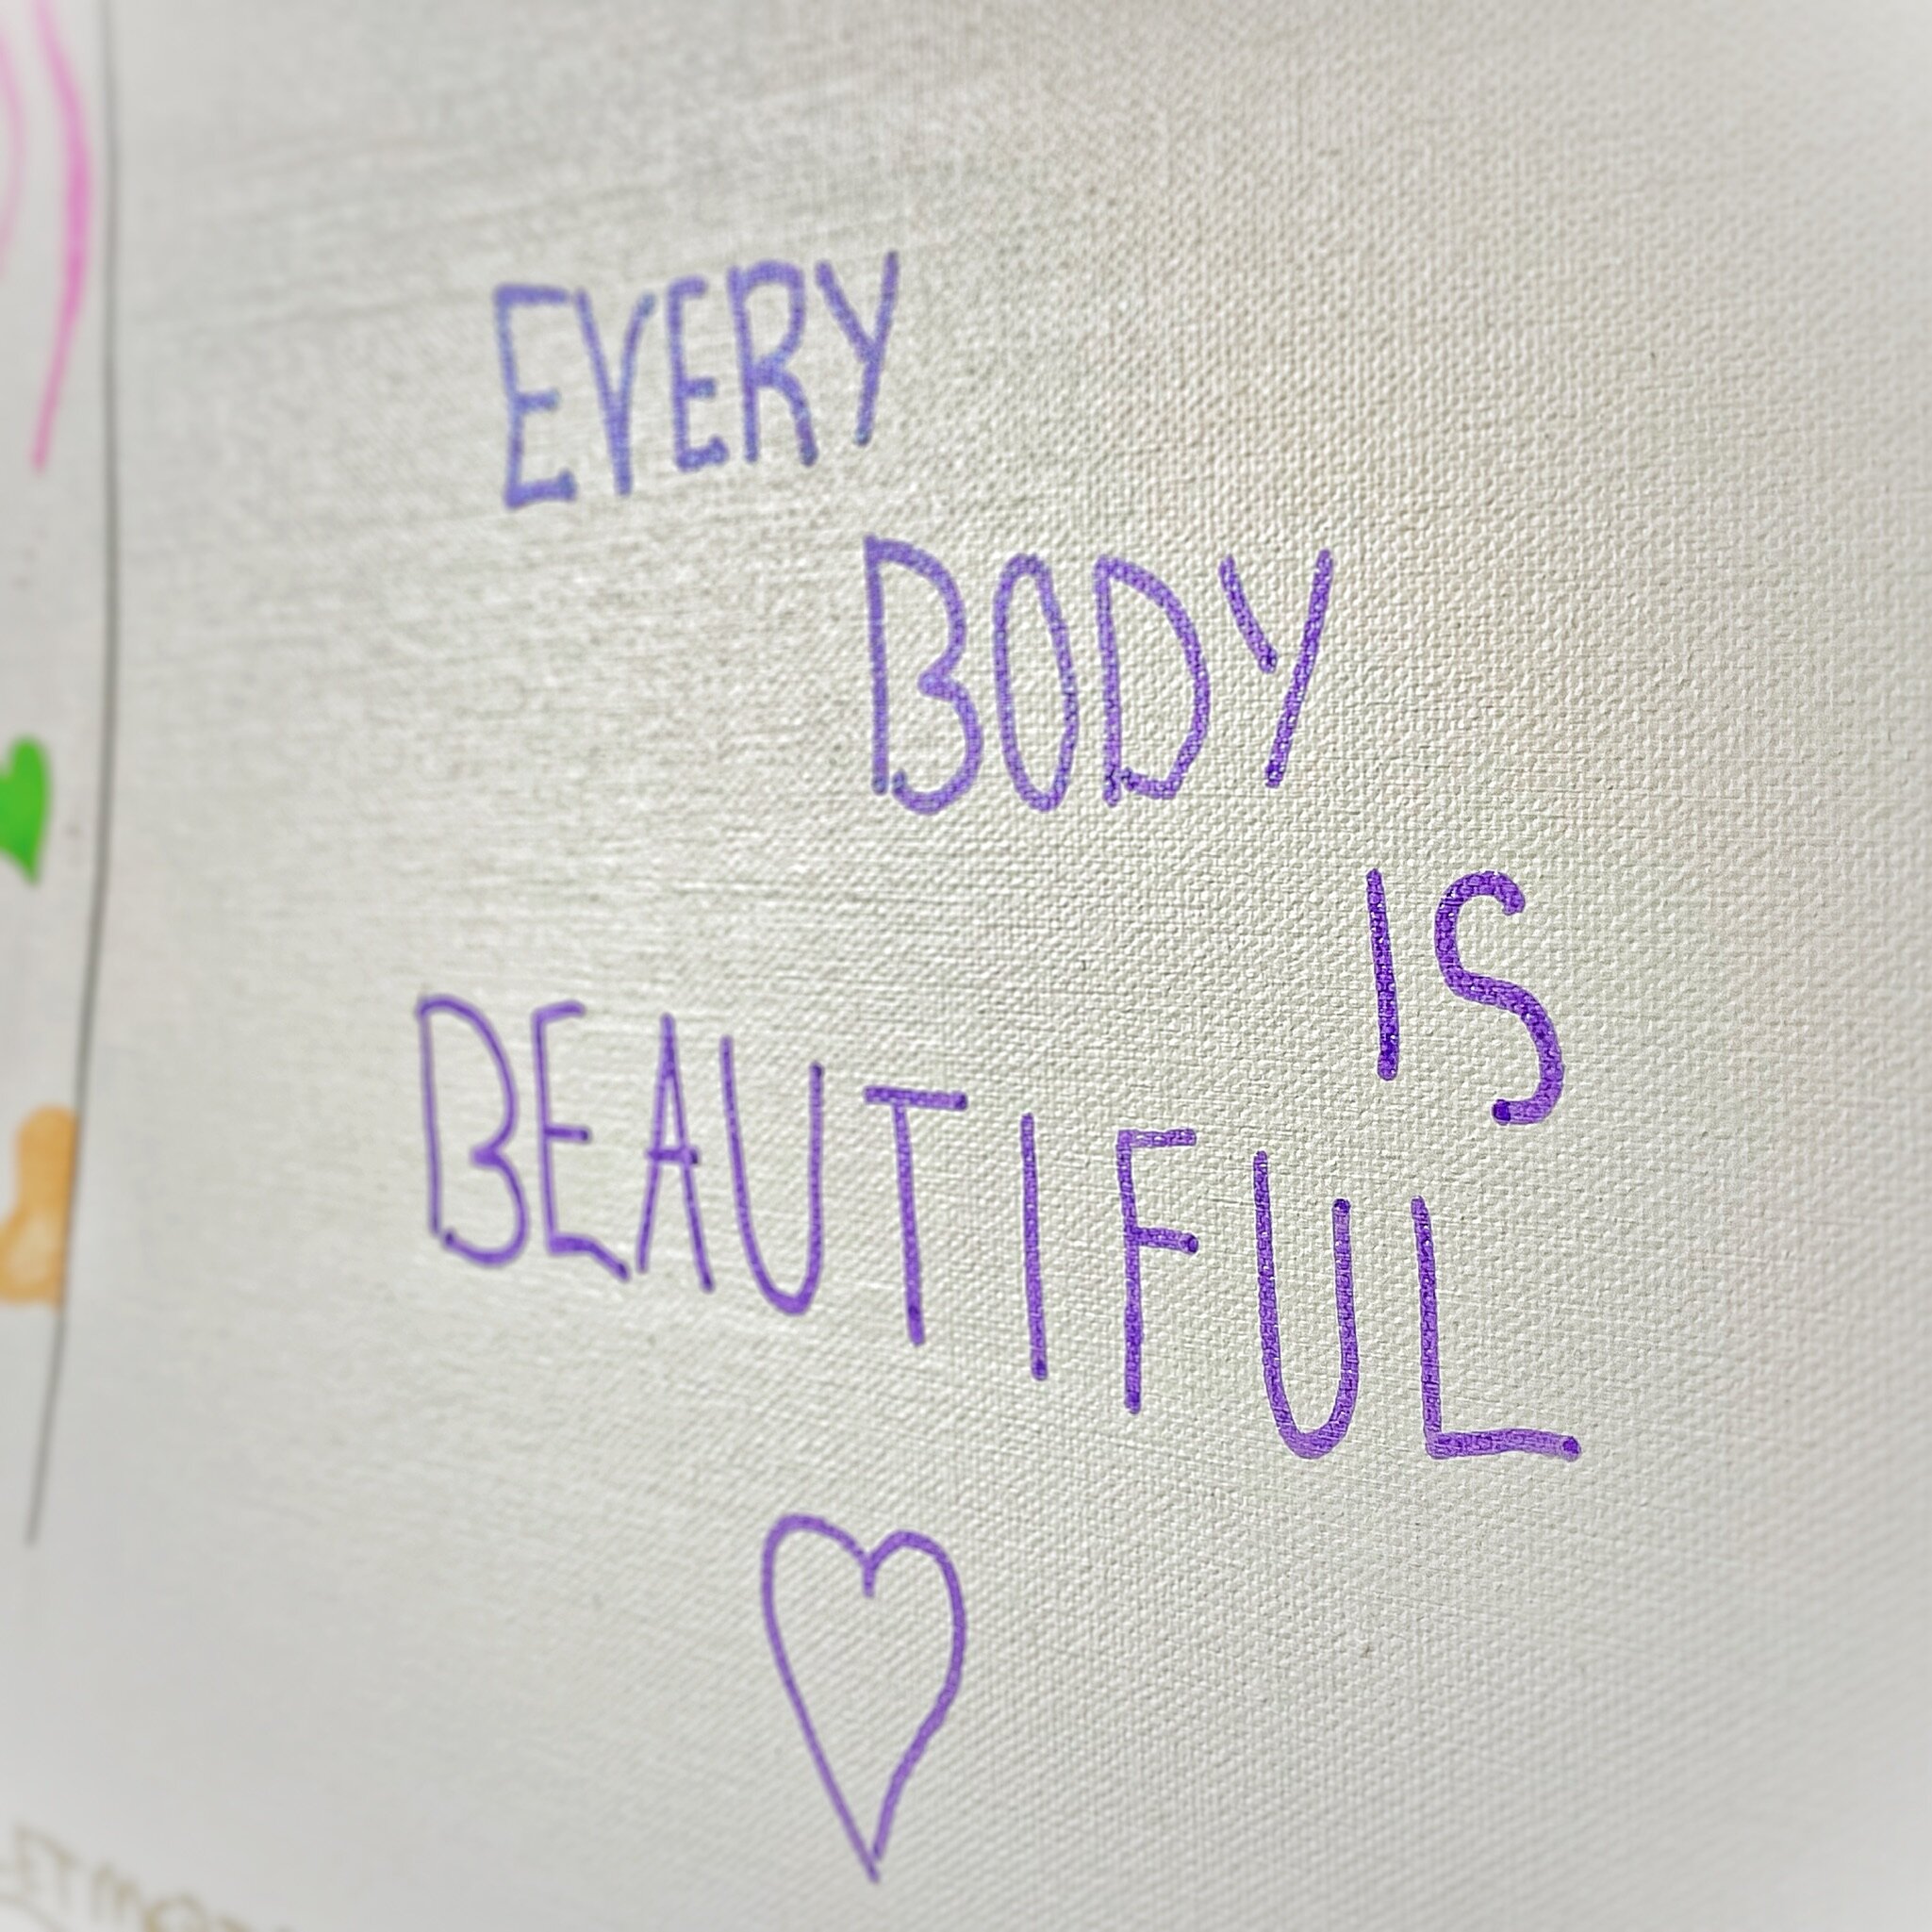 EVERY
BODY
IS
BEAUTIFUL